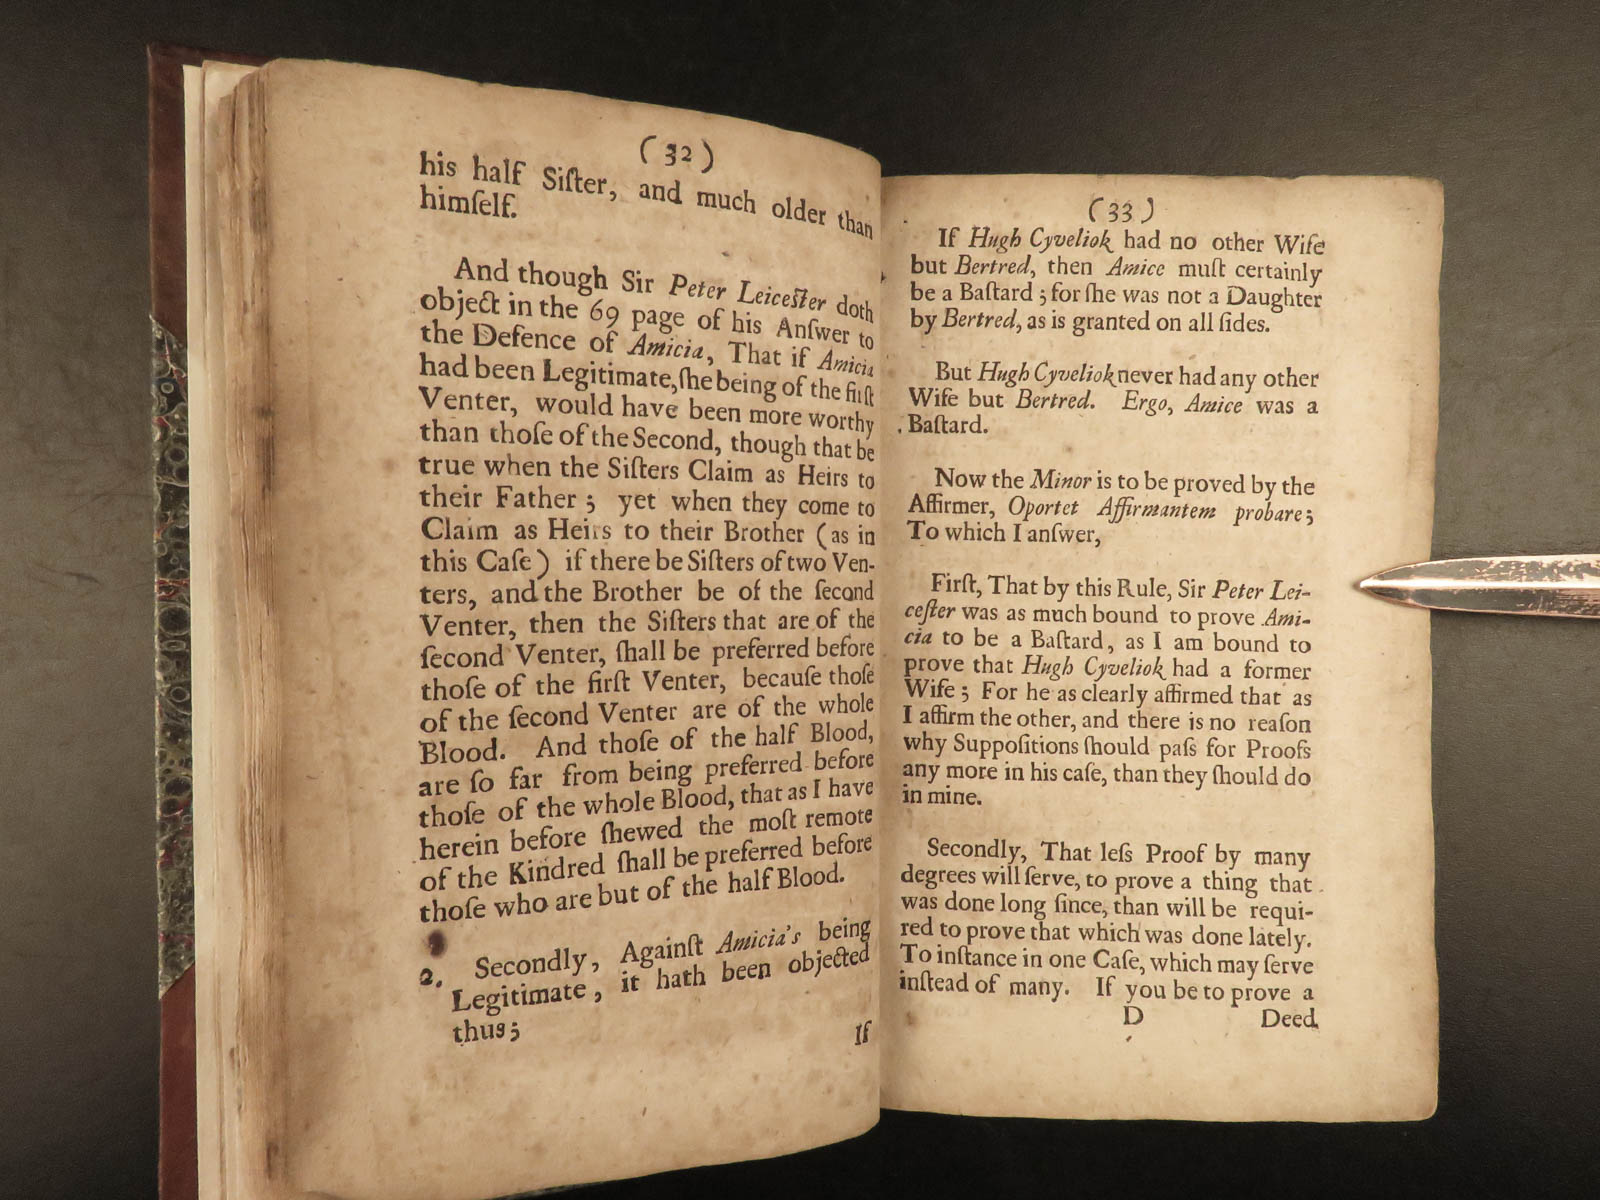 (32)
his half Siſter, and much older than
himſelf.
And though Sir Peter Leiceſter doth
object in the 69 page of his Anſwer to
the Defence of Amicia, That if Amicia
had been Legitimate, ſhe being of the firſt
Venter, would have been more worthy
than thoſe of the Second, though that be
true when the Siſters Claim as Heirs to
their Father; yet when they come to
Claim as Heirs to their Brother (as in
this Caſe) if there be Siſters of two Ven-
ters, and the Brother be of the ſecond
Venter, then the Siſters that are of the
ſecond Venter, ſhall be preferred before
thoſe of the firſt Venter, becauſe thoſe
of the ſecond Venter are of the whole
Blood. And thoſe of the half Blood,
are ſo far from being preferred before
thoſe of the whole Blood, that as I have
herein before ſhewed the moſt remote
of the Kindred ſhall be preferred before
thoſe who are but of the half Blood.
2. Secondly, Againſt Amicia's being
Legitimate, it hath been objected
thus;
If
(33)
If Hugh Cyveliok had no other Wife
but Bertred, then Amice muſt certainly
be a Baſtard; for ſhe was not a Daughter
by Bertred, as is granted on all ſides.
But Hugh Cyveliok never had any other
Wife but Bertred. Ergo, Amice was a
Baſtard.
Now the Minor is to be proved by the
Affirmer, Oportet Affirmantem probare;
To which I anſwer,
Firſt, That by this Rule, Sir Peter Lei-
ceſter was as much bound to prove Ami-
cia to be a Baſtard, as I am bound to
prove that Hugh Cyveliok had a former
Wife; For he as clearly affirmed that as
I affirm the other, and there is no reaſon
why Suppoſitions ſhould paſs for Proofs
any more in his caſe, than they ſhould do
in mine.
Secondly, That leſs Proof by many
degrees will ſerve, to prove a thing that
was done long ſince, than will be requi-
red to prove that which was done lately.
To inſtance in one Caſe, which may ſerve
inſtead of many. If you be to prove a
D Deed